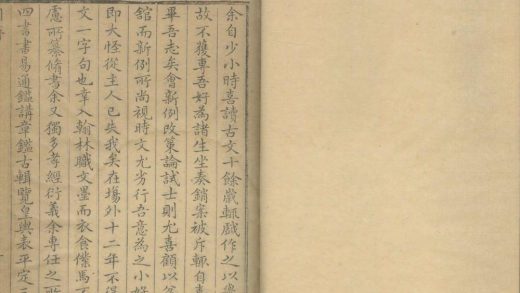 余自少小時喜讀古文十餘歲輒戲作之以
故不獲專吾好為諸生坐奏銷案被斥輒自
畢吾志矣會新例改策論試士則尤喜顧以
舘而新例所尚視時文尤劣行吾意為之小好
即大怪從主人已失我矣在塲外十二年不得
文一字句也幸入翰林職文墨而衣食僕馬
慮所纂脩書余又獨多孝經衍義余専任之所
四書書易通鑑講章鑑古輯覽皇輿表平定三